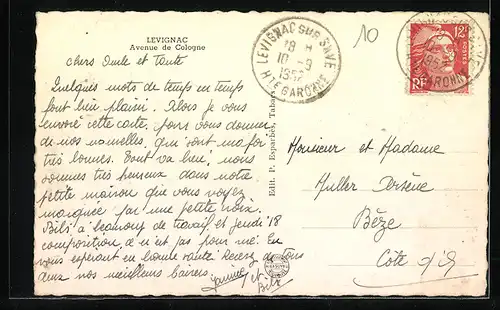 LEVIGNAC
Avenue de Cologne
chers Oncle et tante
Quelques mots de temps en temps
font bien plaisir. Alors je vous
envoie cette carte, pour vous donner
de nos nouvelles, qui sont ma foi
très bonnes. Tout va bien, nous
sommes très heureux dans notre
petite maison que vous voyez
marquée par une petite croix.
à beaucoup de travail, et jeudi 18
composition, ce n'est pas pour me. En
vous espérant en bonne santé Recevez de tous
deux nos meilleurs baisers
et
Edit. P. Esparbès, Tabacs
LEVIGNAC SUR SAVE
18 H
10 - 9
1952
HTE GARONNE
10
12F
POSTES
RF
Monsieur et Madame
Muller Arsène
Bèze
Côte d'Or